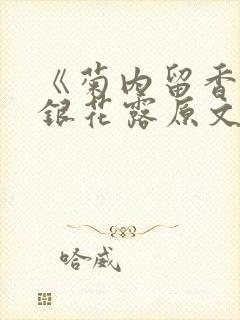 《菊内留香
銀花露原文
哈威